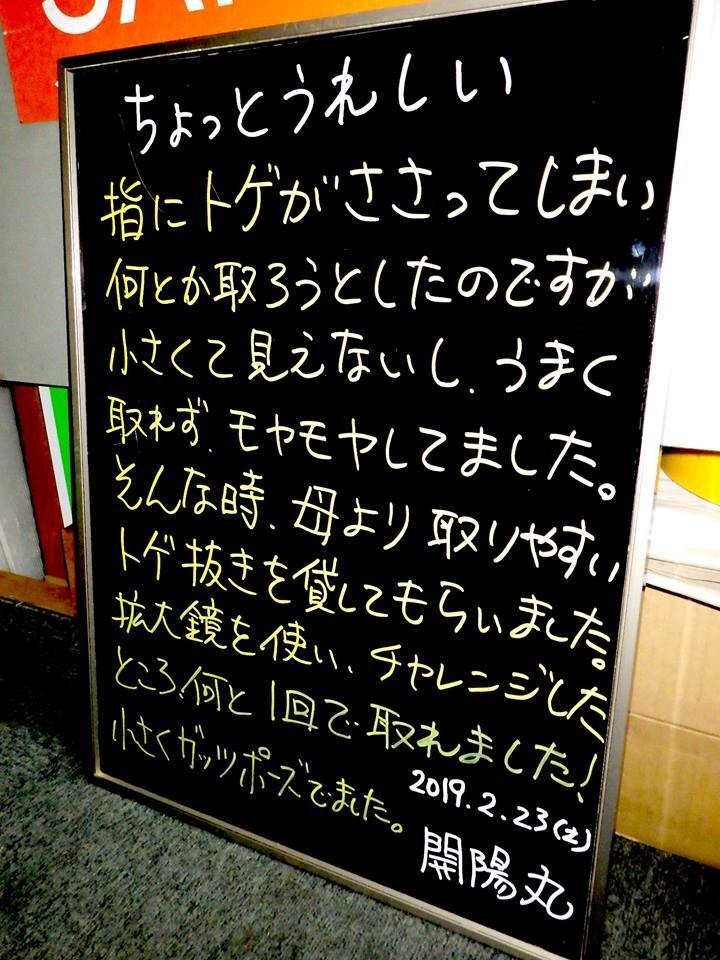 ちょっとうれしい
指にトゲがささってしまい
何とか取ろうとしたのですが
小さくて見えないし、うまく
取れず、モヤモヤしてました。
そんな時、母より取りやすい
トゲ抜きを貸してもらいました。
拡大鏡を使い、チャレンジした
ところ、何と1回で取れました!
小さくガッツポーズでました。
2019.2.23(土)
開陽丸